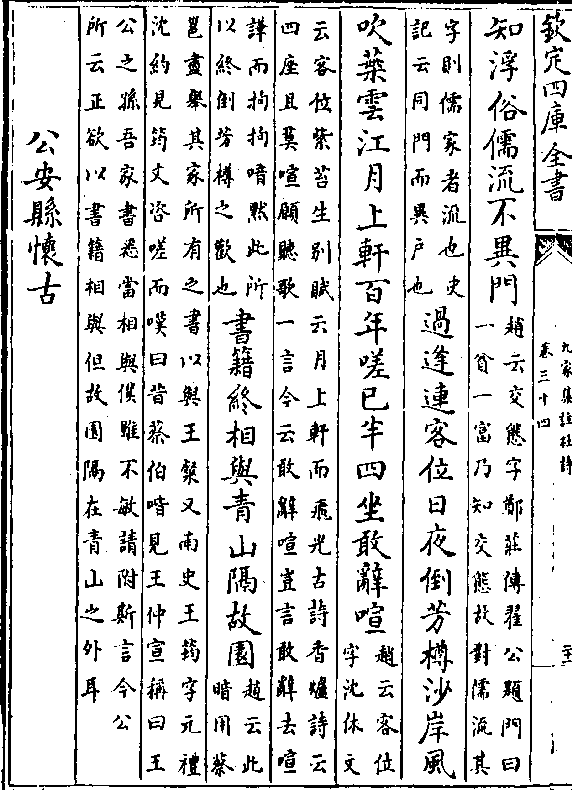 欽定四庫全書
九家集註杜詩
卷三十四
知浮俗儒流不異門
趙云交態字鄭莊傳翟公題門曰
一貧一富乃知交態故對儒流其
字則儒家者流也史
記云同門而異戶也
過逢連客位日夜倒芳樽沙岸風
吹葉雲江月上軒百年嗟已半四坐敢辭喧
趙云客位
字沈休文
云客位紫苔生別賦云月上軒而飛光古詩香爐詩云
四座且莫喧願聽歌一言今云敢辭喧豈言敢辭去喧
譁而拘拘喑默此所
以終倒芳樽之歡也
書籍終相與青山隔故園
趙云此
暗用蔡
邕盡舉其家所有之書以與王粲又南史王筠字元禮
沈約見筠文咨嗟而嘆曰昔蔡伯喈見王仲宣稱曰王
公之孫吾家書悉當相與僕雖不敏請附斯言今公
所云正欲以書籍相與但故園隔在青山之外耳
公安縣懷古